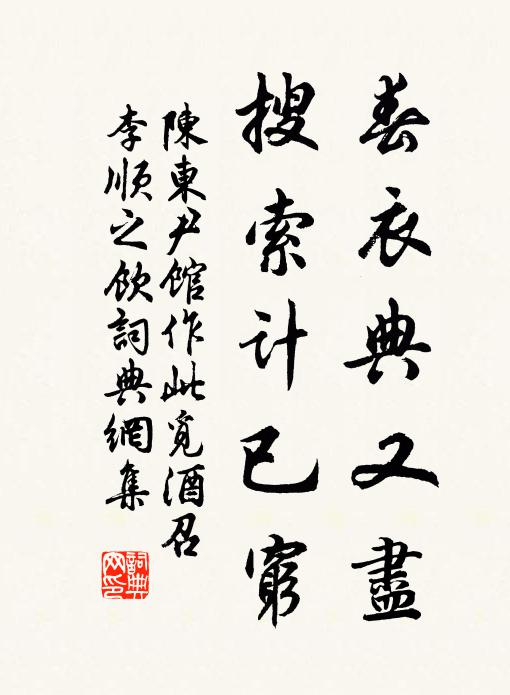 春衣典又盡
搜索计已窮
陳東尹館作此覓酒召
李顺之飲詞典網集
詞典网印